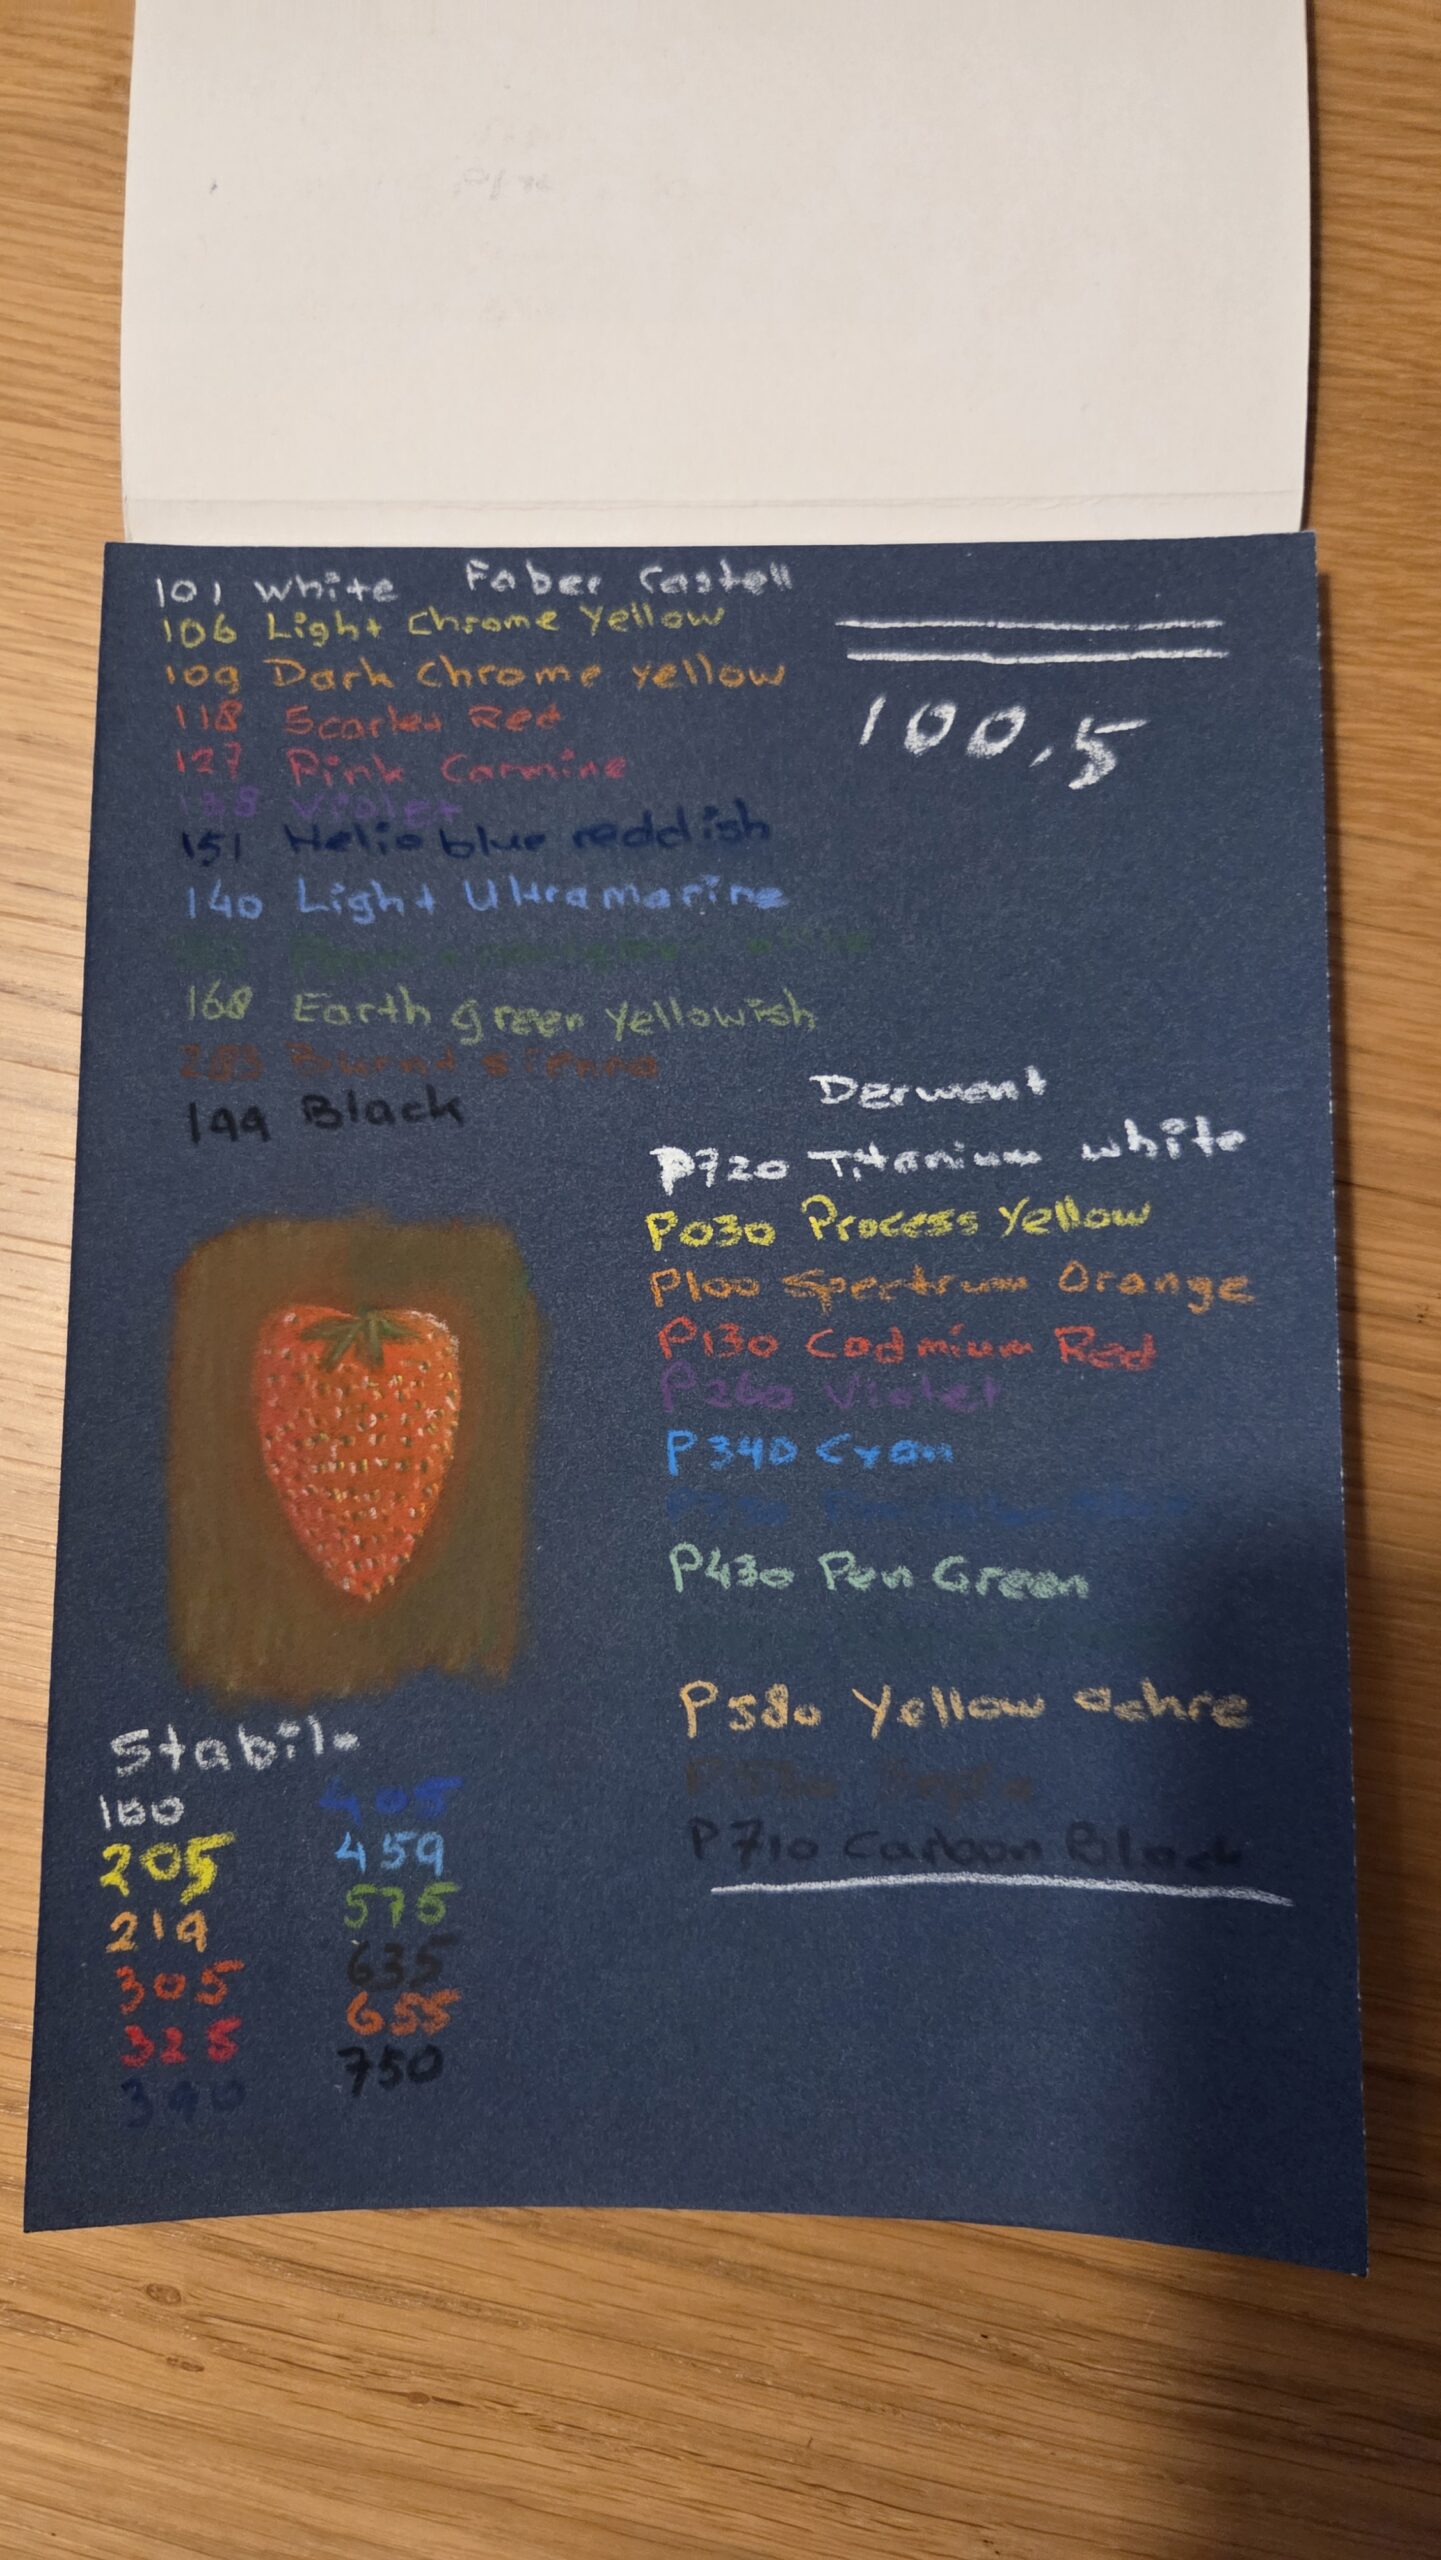 101 white Faber Castell
106 Light Chrome Yellow
109 Dark Chrome yellow
118 Scarlet Red
127 Pink Carmine
138 Violet
151 Helio blue reddish
140 Light Ultramarine
168 Earth green yellowish
283 Burnt sienna
199 Black
100,5
Derwent
P720 Titanium white
P030 Process Yellow
P100 Spectrum Orange
P130 Cadmium Red
P260 Violet
P340 Cyan
P430 Pen Green
P580 Yellow ochre
P710 Carbon Black
Stabilo
100
205
219
305
325
390
405
459
575
635
655
750